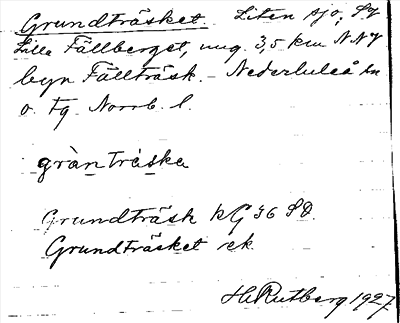 Grundträsket. Liten sjö, SV
Lilla Fällberget, ung. 3,5 km NNV
byn Fällträsk. Nederluleå sn
o. tg Norrb. l.
gràn tráska
Grundträsk kG 36 SO
Grundträsket ek
H. Rutberg 1927